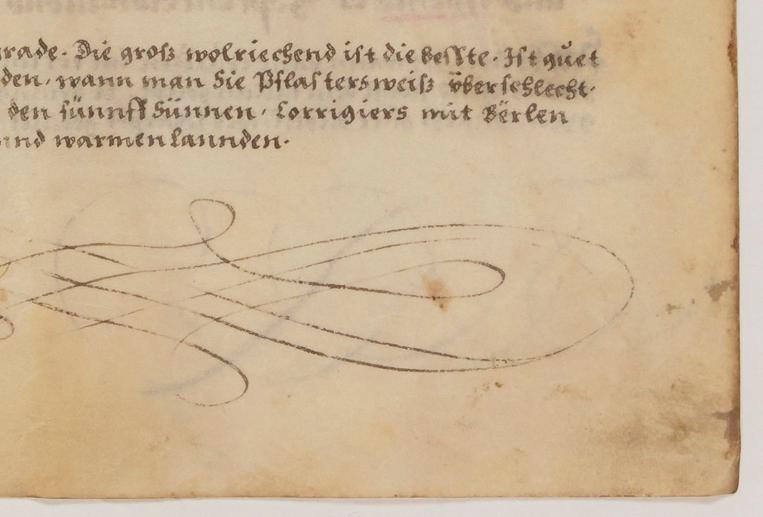 grade. Die groß wolriechend ist die besste. Ist guet
den, wann man Sie Pflastersweiß überschlecht.
den fünnff Sünnen. Corrigiers mit Berlen
und warmen lannden.